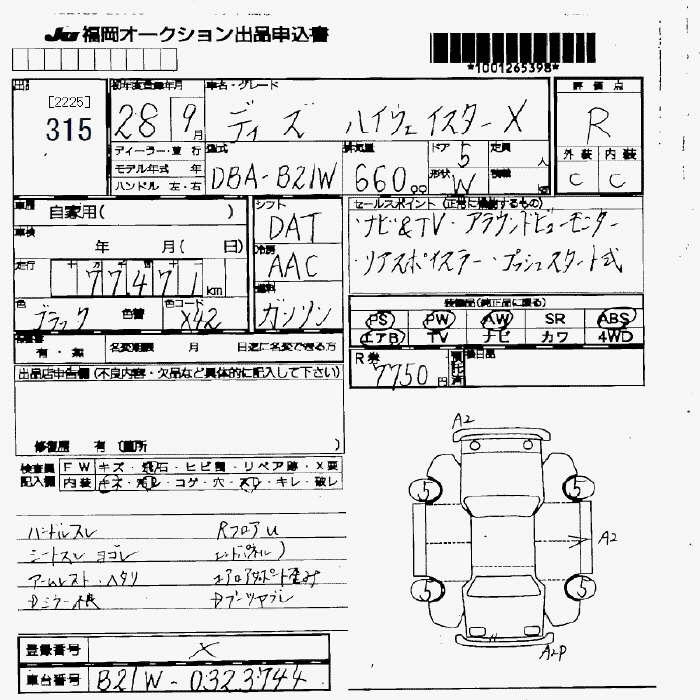 JU 福岡オークション出品申込書
*1001265398*
[2225]
315
初年度登録年月
28 9月
車名・グレード
デイズ ハイウェイスターX
評価点
R
外装 内装
C C
ディーラー・並行
モデル年式 年
ハンドル 左・右
型式
DBA-B21W
排気量
660cc
ドア 5
形状 W
定員 人
積載
車歴 自家用( )
車検 年 月( 日)
走行 十 万 千 百 十 一
77471 km
色 ブラック 色替
色コード X42
シフト DAT
冷房 AAC
燃料 ガソリン
セールスポイント (正常に機能するもの)
・ナビ&TV・アラウンドビューモニター
・リアスポイラー・プッシュスタート式
装備品(純正品に限る)
PS PW AW SR ABS
エアB TV ナビ カワ 4WD
有・無 名変期限 月 日迄に名変できる方
R券 7750円
預託済
後日品
出品店申告欄 (不良内容・欠品など具体的に記入して下さい)
修復歴 有 (箇所 )
検査員記入欄
FW キズ・飛石・ヒビ割・リペア跡・X要
内装 キズ・汚レ・コゲ・穴・スレ・キレ・破レ
ハンドルスレ RフロアU
シートスレ ヨゴレ
アームレスト・ヘタリ
Dミラーキズ Dブーツヤブレ
A2
5 5
A2
5 5
A2P
登録番号 X
車台番号 B21W-0323744